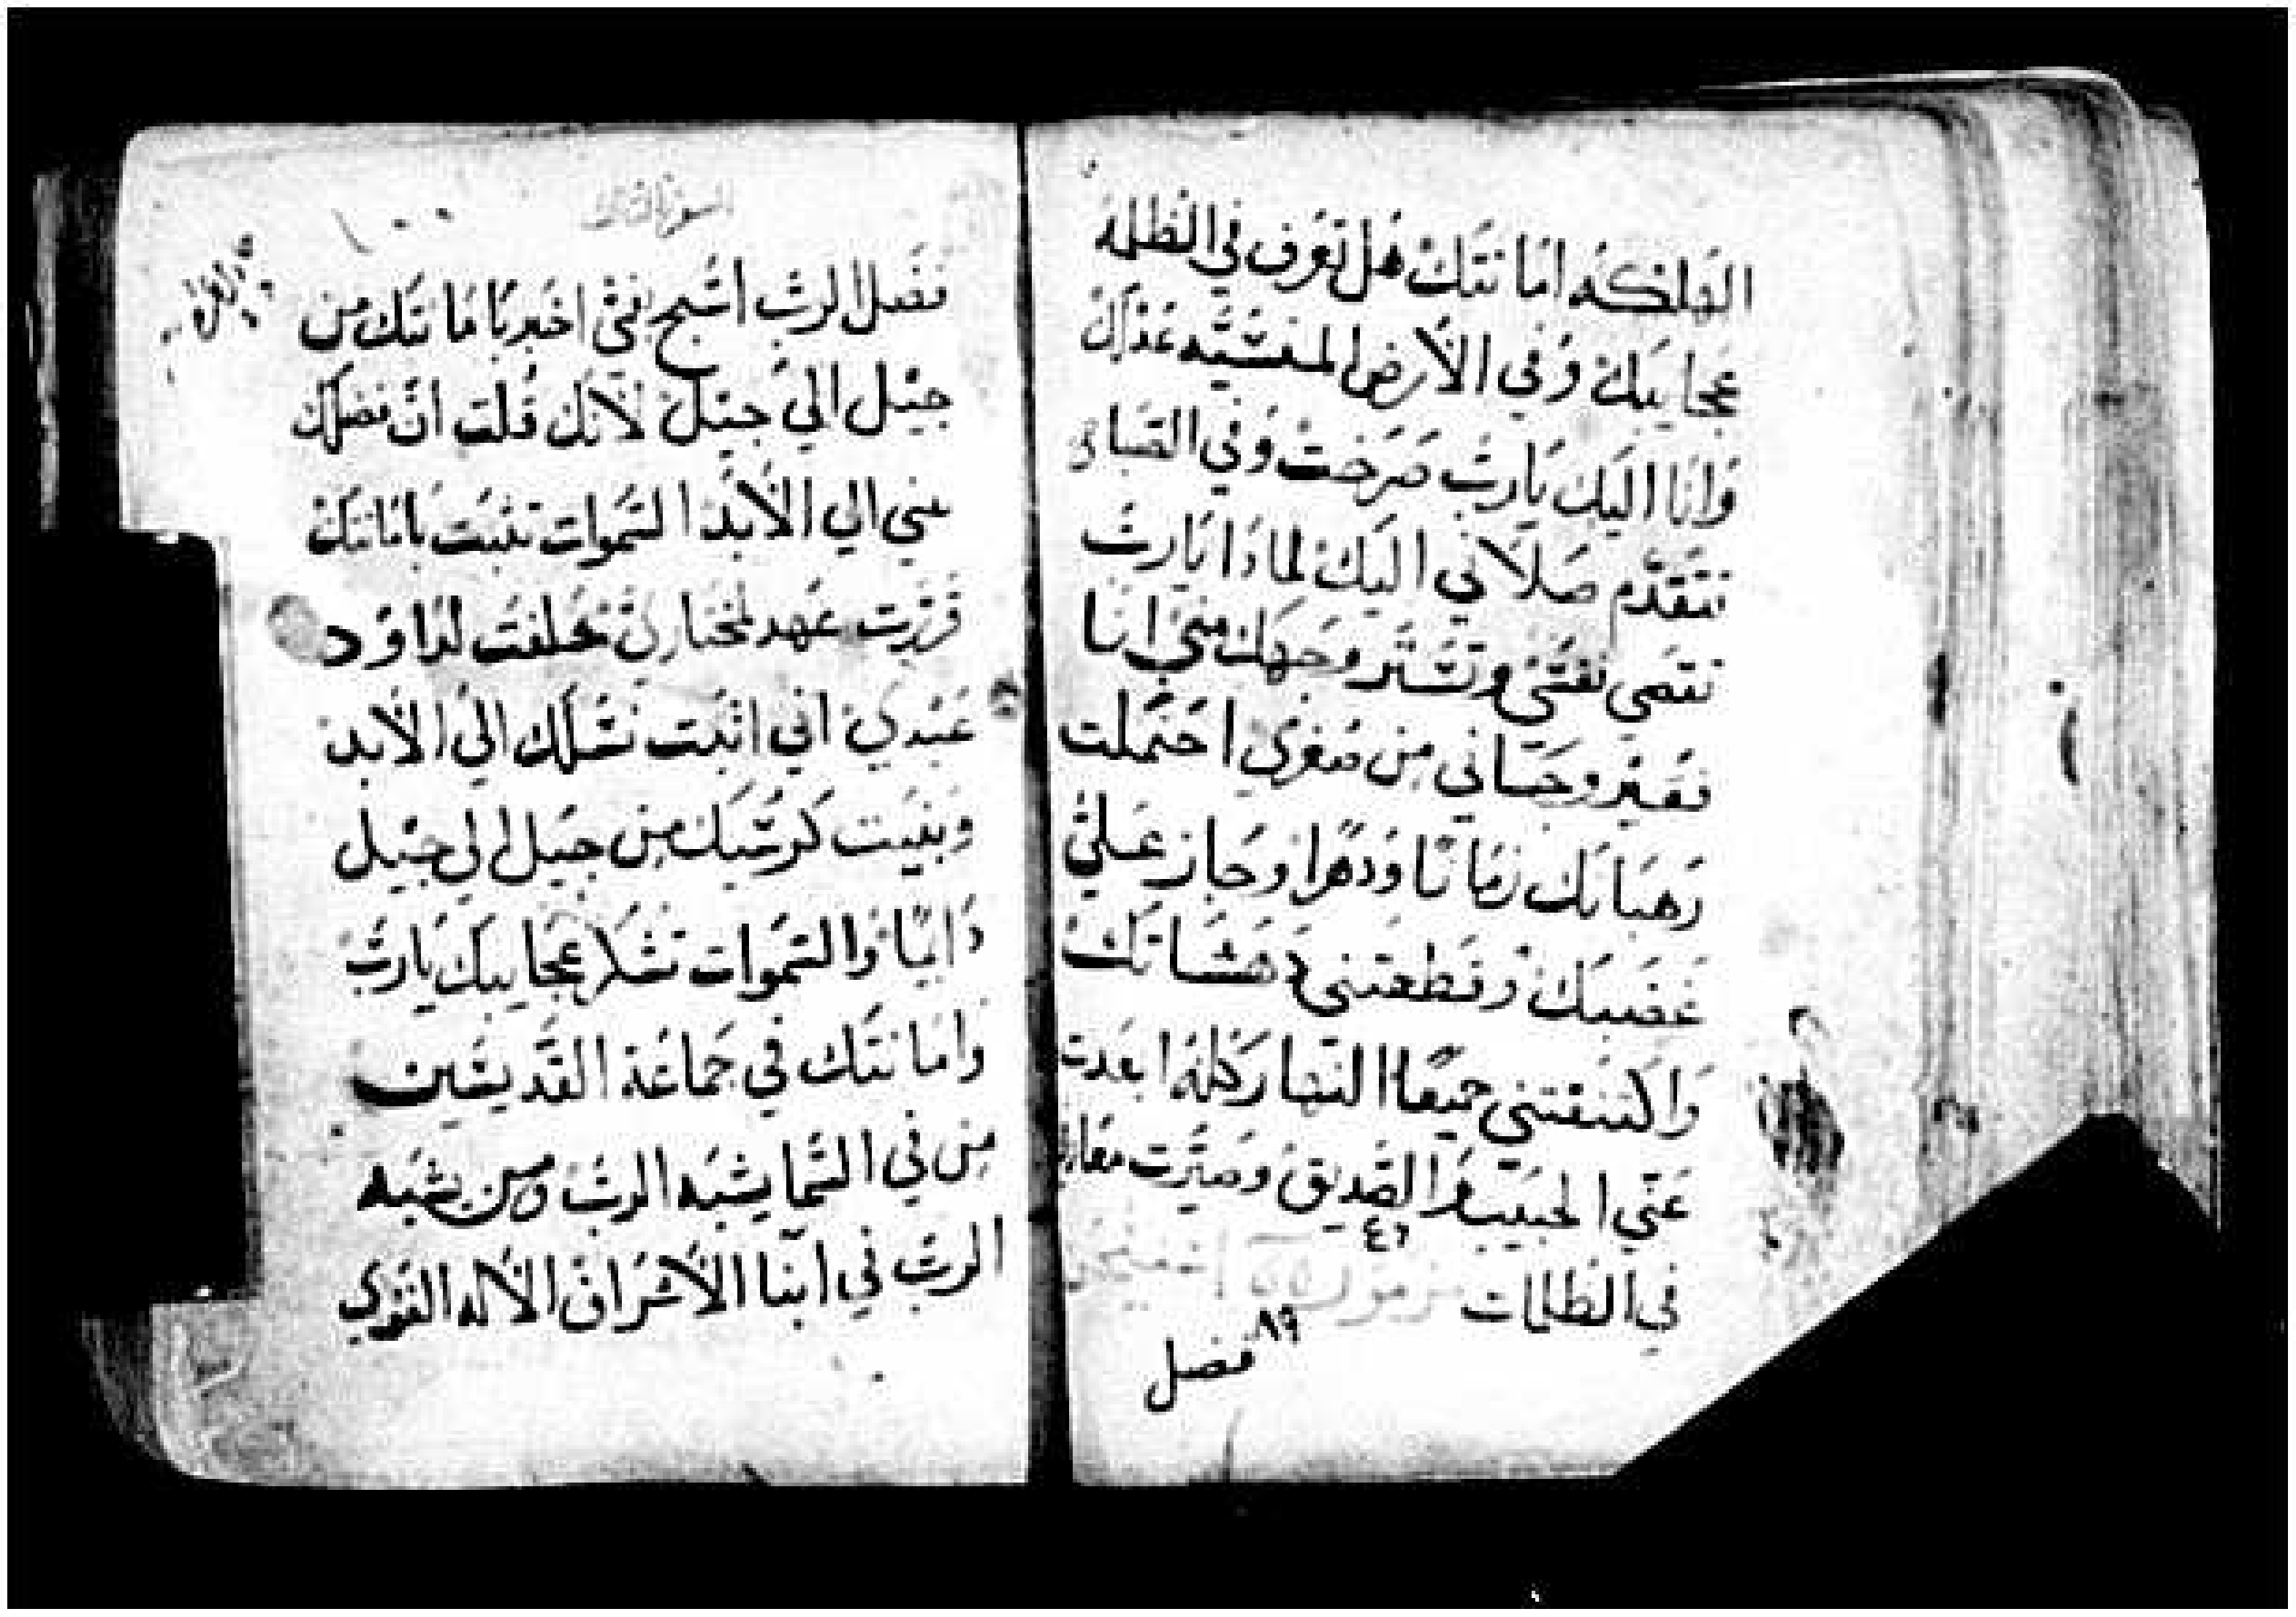 الهلكه امانتك هل تعرف في الظلمه
عجايبك وفي الأرض المنسيه عدلك
وانا اليك يارب صرخت وفي الصباح
تتقدم صلاتي اليك لمادا يارب
تقصي نفسي وتستر وجهك مني انا
فقير وحياني من صغري احتملت
رهباتك زمانا ودهرا وجاز علي
غضبك وقطعتني دهشاتك
واكتنفتني جميعا النهار كله ابعدت
عني الحبيب والصديق وصيرت معارفي
في الظلمات مزمور
٨٩ فضل
فضل الرب اسبح بفمي اخبر بامانتك من
جيل الي جيل لانك قلت ان فضلك
يبني الي الأبد السموات تثبت بامانتك
قررت عهد لمختاري حلفت لداوود
عبدي اني اثبت نسلك الي الأبد
وبنيت كرسيك من جيل الي جيل
دايما والسموات تشكر عجايبك يارب
وامانتك في جماعة القديسين
من في السما يشبه الرب ومن يشبه
الرب في ابنا الأشراف الأله القوي